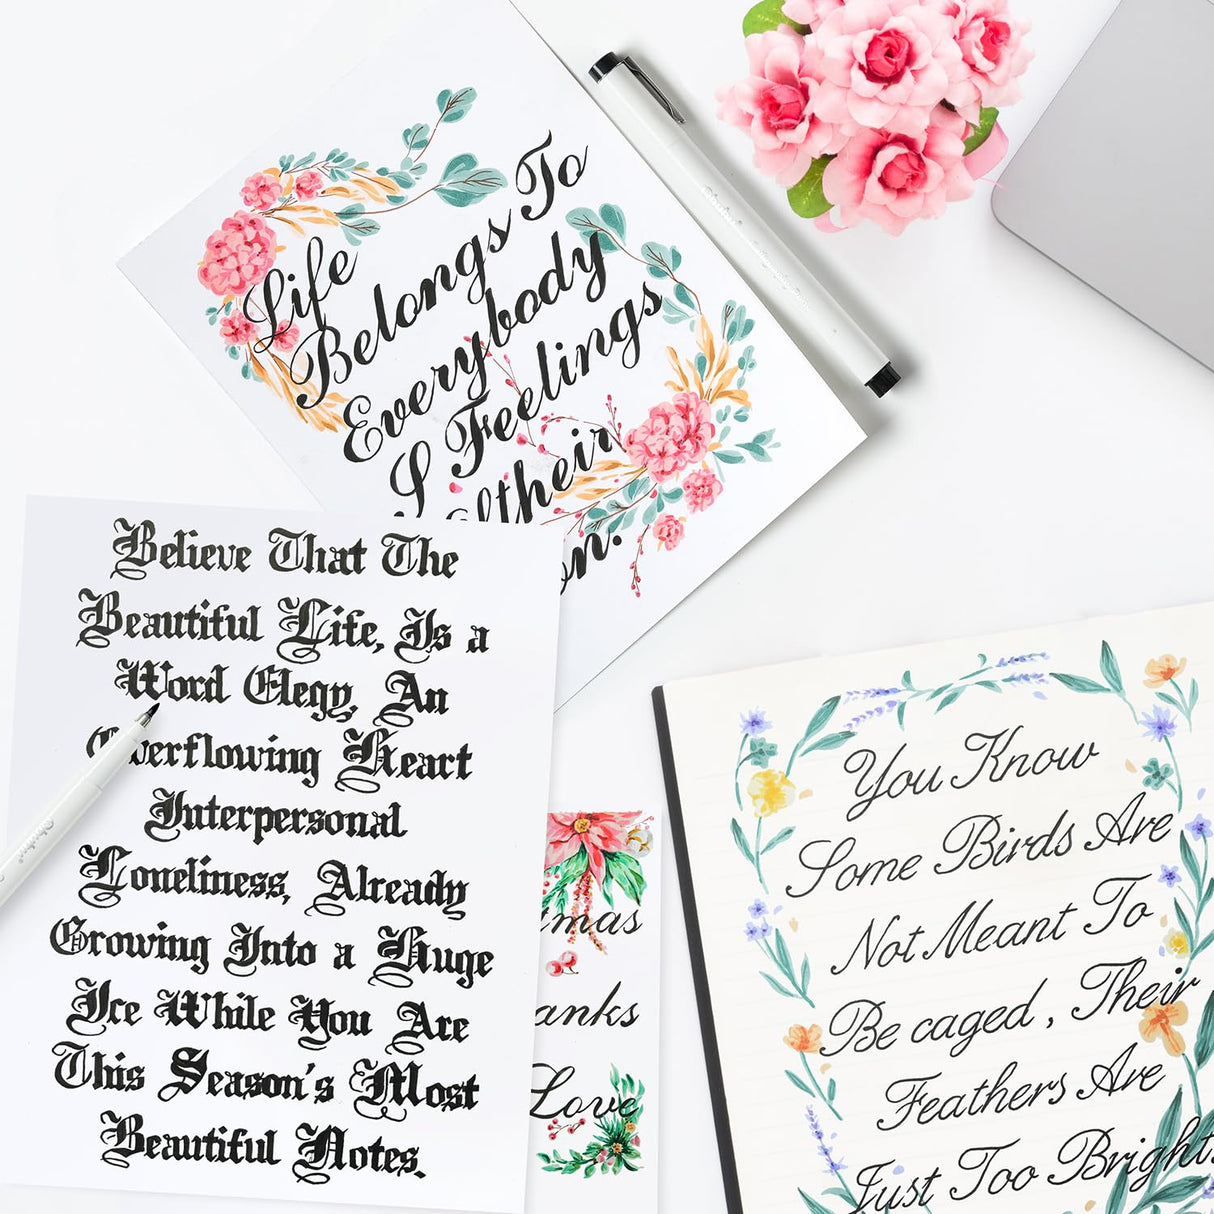 Life
Belongs To
Everybody
I Feelings
their
on.
Believe That The
Beautiful Life, Is a
Word Elegy, An
Overflowing Heart
Interpersonal
Loneliness, Already
Growing Into a Huge
Ice While You Are
This Season's Most
Beautiful Notes.
mas
anks
Love
You Know
Some Birds Are
Not Meant To
Be caged, Their
Feathers Are
Just Too Bright.